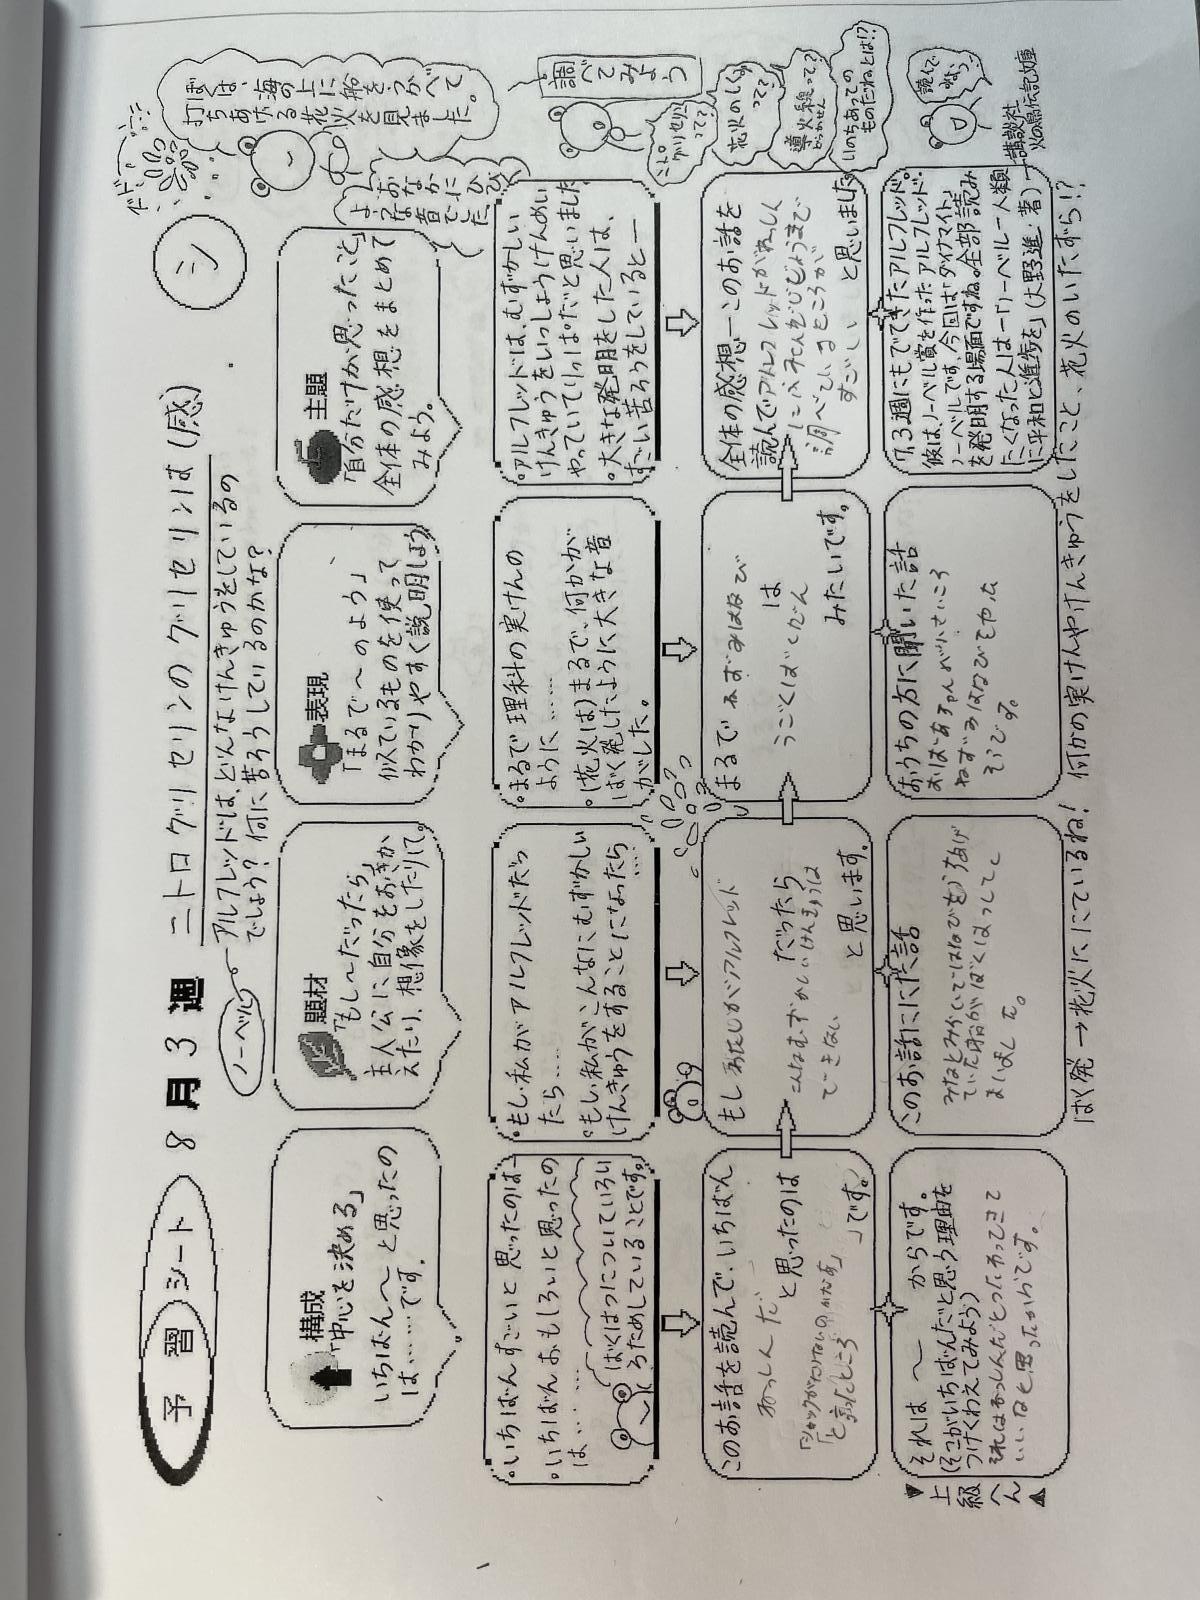 予習シート 8月3週 ニトログリセリンのグリセリンは(感) シ
ノーベル
アルフレッドは、どんなけんきゅうをしているの
でしょう?何に苦ろうしているのかな?
構成
「中心を決める」
いちばん〜と思ったの
は、……です。
題材
「もし〜だったら」
主人公に自分をおきか
えたり、想像をしたりして。
表現
「まるで〜のよう」
似ているものを使って
わかりやすく説明しよう
主題
「自分だけが思ったこと」
全体の感想をまとめて
みよう。
ドドーン
ぼくは、海の上に船をうかべて
打ちあげる花火を見ました。
おなかにひびく
ような音でした
。いちばんすごいと思ったのは―
。いちばんおもしろいと思ったの
は……
ばくはつについていろい
ろためしていることです。
。もし私がアルフレッドだっ
たら……
。もし私がこんなにむずかしい
けんきゅうをすることになったら…
。まるで理科の実けんの
ように……
。(花火は)まるで、何かが
ばく発したように大きな音
がした。
。アルフレッドは、むずかしい
けんきゅうをいっしょうけんめい
やっていてりっぱだと思いました
。大きな発明をした人は、
すごい苦ろうをしていると―
調べてみよう
ニトログリセリンって?
花火のしくみって?
導火線って?
どうかせん
いのちあっての
ものだねとは!?
このお話を読んで、いちばん
ねっしんだ
と思ったのは
と言ったところ
」です。
もし あたしがアルフレッド
だったら
こんなむずかしいけんきゅうは
できない
と思います。
まるで ねずみはなび
は
うごくばくだん
みたいです。
全体の感想―このお話を
読んでアルフレッドがねっしん
調べているところが
すごい
と思いました
読んでみよう
▼上級へん▲
それは 〜 からです。
(そこがいちばんだと思う理由を
つけくわえてみよう)
それはねっしんだとつたわってきて
いいなと思ったからです。
このお話ににた話
みなとみらいではなびをうちあげ
ていた船がばくはつしてし
まいました。
おうちの方に聞いた話
おばあちゃんが小さいころ
ねずみはなびをやった
そうです。
7.3週にもでてきたアルフレッド。
彼は、ノーベル賞を作ったアルフレッド・
ノーベルです。今回は「ダイナマイト」
を発明する場面ですね。全部読み
たくなった人は―「ノーベル―人類
に平和と進歩を」(大野進・著)―講談社
火の鳥伝記文庫
ばく発→花火ににているね! 何かの実けんやけんきゅうをしたこと、花火のいたずら!?